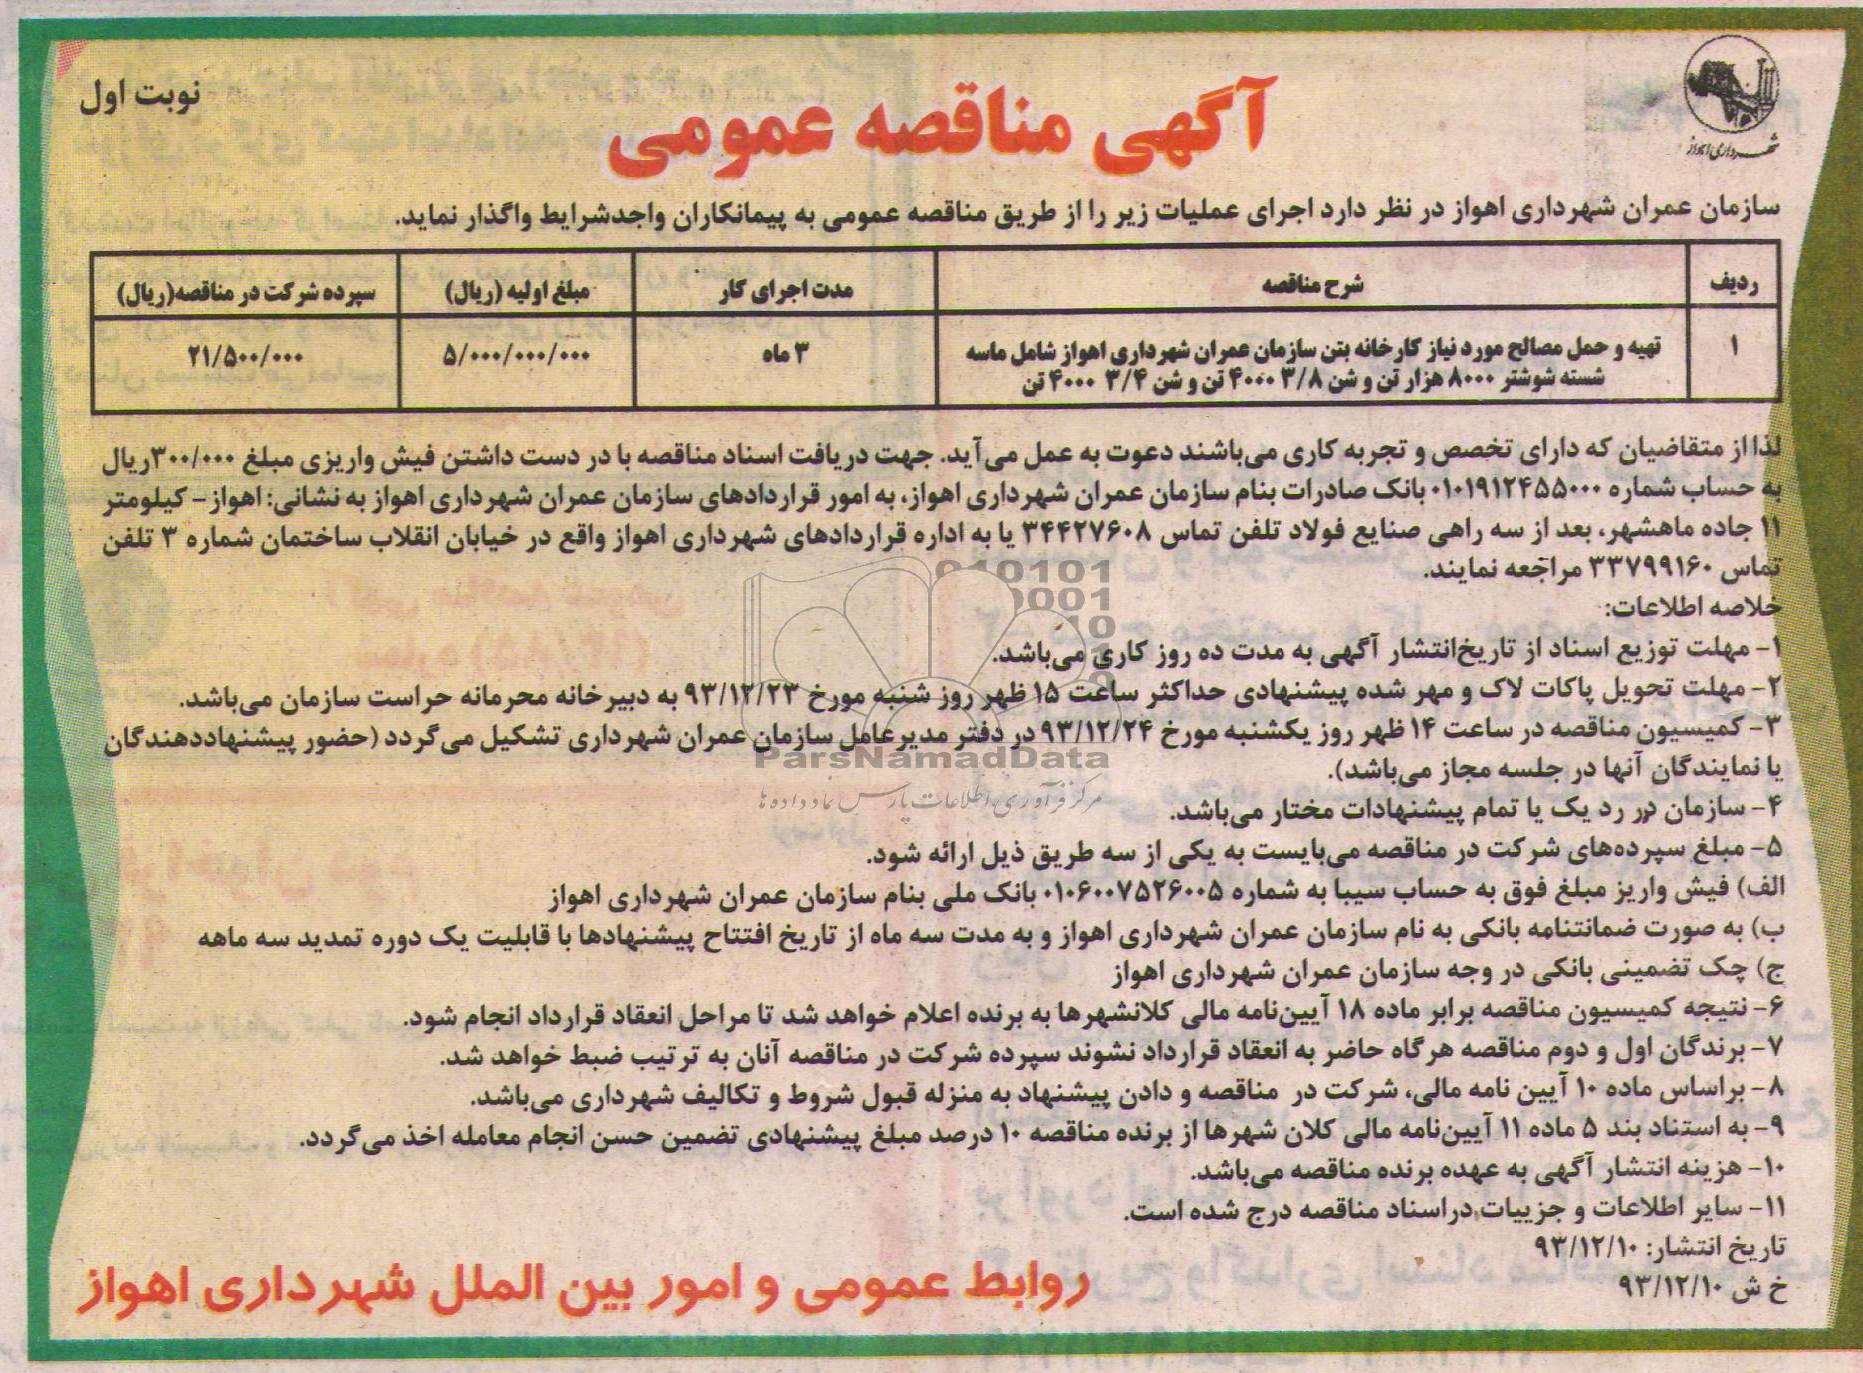 شهرداری اهواز
نوبت اول
آگهی مناقصه عمومی
سازمان عمران شهرداری اهواز در نظر دارد اجرای عملیات زیر را از طریق مناقصه عمومی به پیمانکاران واجدشرایط واگذار نماید.
ردیف شرح مناقصه مدت اجرای کار مبلغ اولیه (ریال) سپرده شرکت در مناقصه(ریال)
۱ تهیه و حمل مصالح مورد نیاز کارخانه بتن سازمان عمران شهرداری اهواز شامل ماسه ۳ ماه ۵/۰۰۰/۰۰۰/۰۰۰ ۲۱/۵۰۰/۰۰۰
شسته شوشتر ۸۰۰۰ هزار تن و شن ۳/۸ ۴۰۰۰ تن و شن ۳/۴ ۴۰۰۰ تن
لذا از متقاضیان که دارای تخصص و تجربه کاری می‌باشند دعوت به عمل می‌آید. جهت دریافت اسناد مناقصه با در دست داشتن فیش واریزی مبلغ ۳۰۰/۰۰۰ریال
به حساب شماره ۰۱۰۱۹۱۲۴۵۵۰۰۰ بانک صادرات بنام سازمان عمران شهرداری اهواز، به امور قراردادهای سازمان عمران شهرداری اهواز به نشانی: اهواز- کیلومتر
۱۱ جاده ماهشهر، بعد از سه راهی صنایع فولاد تلفن تماس ۳۴۴۲۷۶۰۸ یا به اداره قراردادهای شهرداری اهواز واقع در خیابان انقلاب ساختمان شماره ۳ تلفن
تماس ۳۳۷۹۹۱۶۰ مراجعه نمایند.
خلاصه اطلاعات:
۱- مهلت توزیع اسناد از تاریخ‌انتشار آگهی به مدت ده روز کاری می‌باشد.
۲- مهلت تحویل پاکات لاک و مهر شده پیشنهادی حداکثر ساعت ۱۵ ظهر روز شنبه مورخ ۹۳/۱۲/۲۳ به دبیرخانه محرمانه حراست سازمان می‌باشد.
۳- کمیسیون مناقصه در ساعت ۱۴ ظهر روز یکشنبه مورخ ۹۳/۱۲/۲۴ در دفتر مدیرعامل سازمان عمران شهرداری تشکیل می‌گردد (حضور پیشنهاددهندگان
یا نمایندگان آنها در جلسه مجاز می‌باشد).
۴- سازمان در رد یک یا تمام پیشنهادات مختار می‌باشد.
۵- مبلغ سپرده‌های شرکت در مناقصه می‌بایست به یکی از سه طریق ذیل ارائه شود.
الف) فیش واریز مبلغ فوق به حساب سیبا به شماره ۰۱۰۶۰۰۷۵۲۶۰۰۵ بانک ملی بنام سازمان عمران شهرداری اهواز
ب) به صورت ضمانتنامه بانکی به نام سازمان عمران شهرداری اهواز و به مدت سه ماه از تاریخ افتتاح پیشنهادها با قابلیت یک دوره تمدید سه ماهه
ج) چک تضمینی بانکی در وجه سازمان عمران شهرداری اهواز
۶- نتیجه کمیسیون مناقصه برابر ماده ۱۸ آیین‌نامه مالی کلانشهرها به برنده اعلام خواهد شد تا مراحل انعقاد قرارداد انجام شود.
۷- برندگان اول و دوم مناقصه هرگاه حاضر به انعقاد قرارداد نشوند سپرده شرکت در مناقصه آنان به ترتیب ضبط خواهد شد.
۸- براساس ماده ۱۰ آیین نامه مالی، شرکت در مناقصه و دادن پیشنهاد به منزله قبول شروط و تکالیف شهرداری می‌باشد.
۹- به استناد بند ۵ ماده ۱۱ آیین‌نامه مالی کلان شهرها از برنده مناقصه ۱۰ درصد مبلغ پیشنهادی تضمین حسن انجام معامله اخذ می‌گردد.
۱۰- هزینه انتشار آگهی به عهده برنده مناقصه می‌باشد.
۱۱- سایر اطلاعات و جزییات دراسناد مناقصه درج شده است.
تاریخ انتشار: ۹۳/۱۲/۱۰
خ ش ۹۳/۱۲/۱۰
روابط عمومی و امور بین الملل شهرداری اهواز
ParsNamadData
مرکز فرآوری اطلاعات پارس نماد داده ها